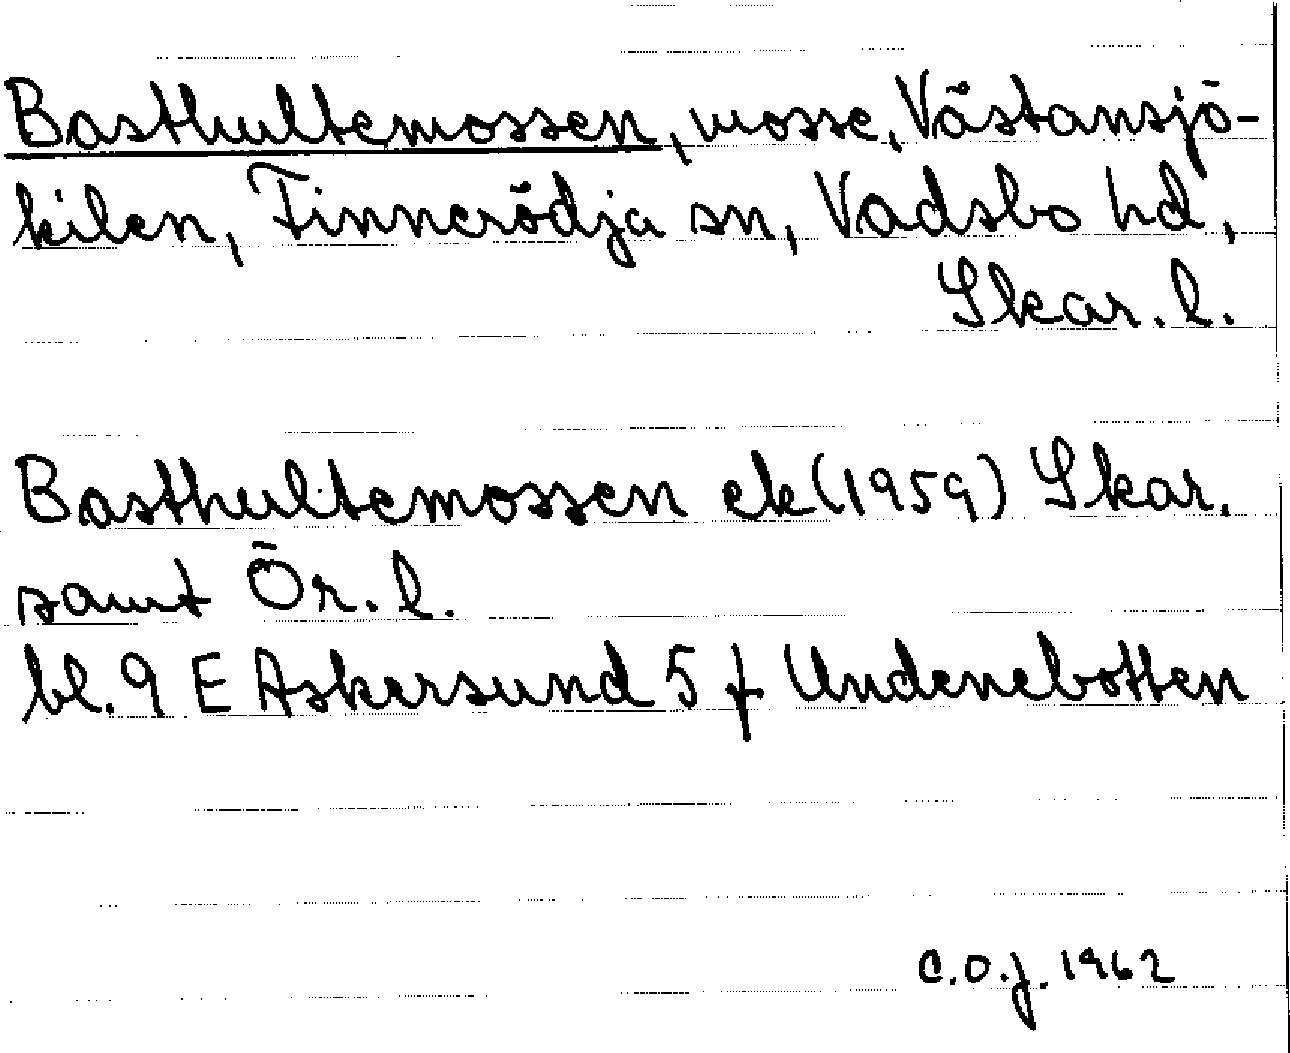 Basthultemossen, mosse, Västansjö-
kilen, Finnerödja sn, Vadsbo hd,
Skar. l.
Basthultemossen ek (1959) Skar.
samt Ör. l.
bl. 9 E Askersund 5 f Undenebotten
C.O.J. 1962